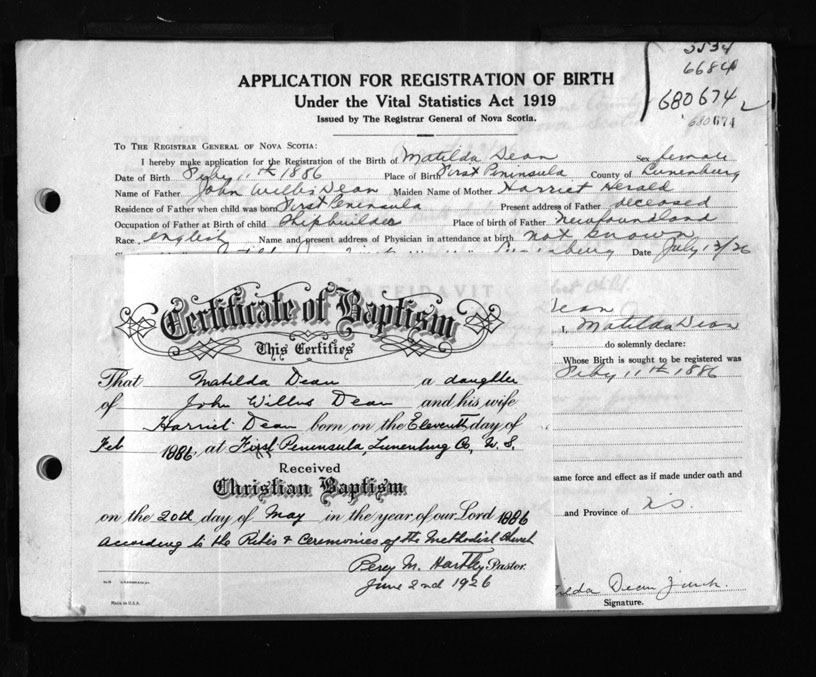 5534
6684
680674
680674
APPLICATION FOR REGISTRATION OF BIRTH
Under the Vital Statistics Act 1919
Issued by The Registrar General of Nova Scotia.
TO THE REGISTRAR GENERAL OF NOVA SCOTIA:
I hereby make application for the Registration of the Birth of Matilda Dean Sex female
Date of Birth Feby 11th 1886 Place of Birth First Peninsula County of Lunenburg
Name of Father John Willis Dean Maiden Name of Mother Harriet Herald
Residence of Father when child was born First Peninsula Present address of Father deceased
Occupation of Father at Birth of child Shipbuilder Place of birth of Father Newfoundland
Race english Name and present address of Physician in attendance at birth not known
Date July 13/26
AFFIDAVIT
Dean
I, Matilda Dean
do solemnly declare:
Whose Birth is sought to be registered was
Feby 11th 1886
same force and effect as if made under oath and
and Province of N.S.
Signature.
Certificate of Baptism
This Certifies
That Matilda Dean a daughter
of John Willis Dean and his wife
Harriet Dean born on the Eleventh day of
Feb 1886. at First Peninsula, Lunenburg Co, N. S.
Received
Christian Baptism
on the 20th day of May in the year of our Lord 1886
According to the Rites & Ceremonies of the Methodist Church
Percy M. Hartley Pastor.
June 2nd 1926
Made in U.S.A.